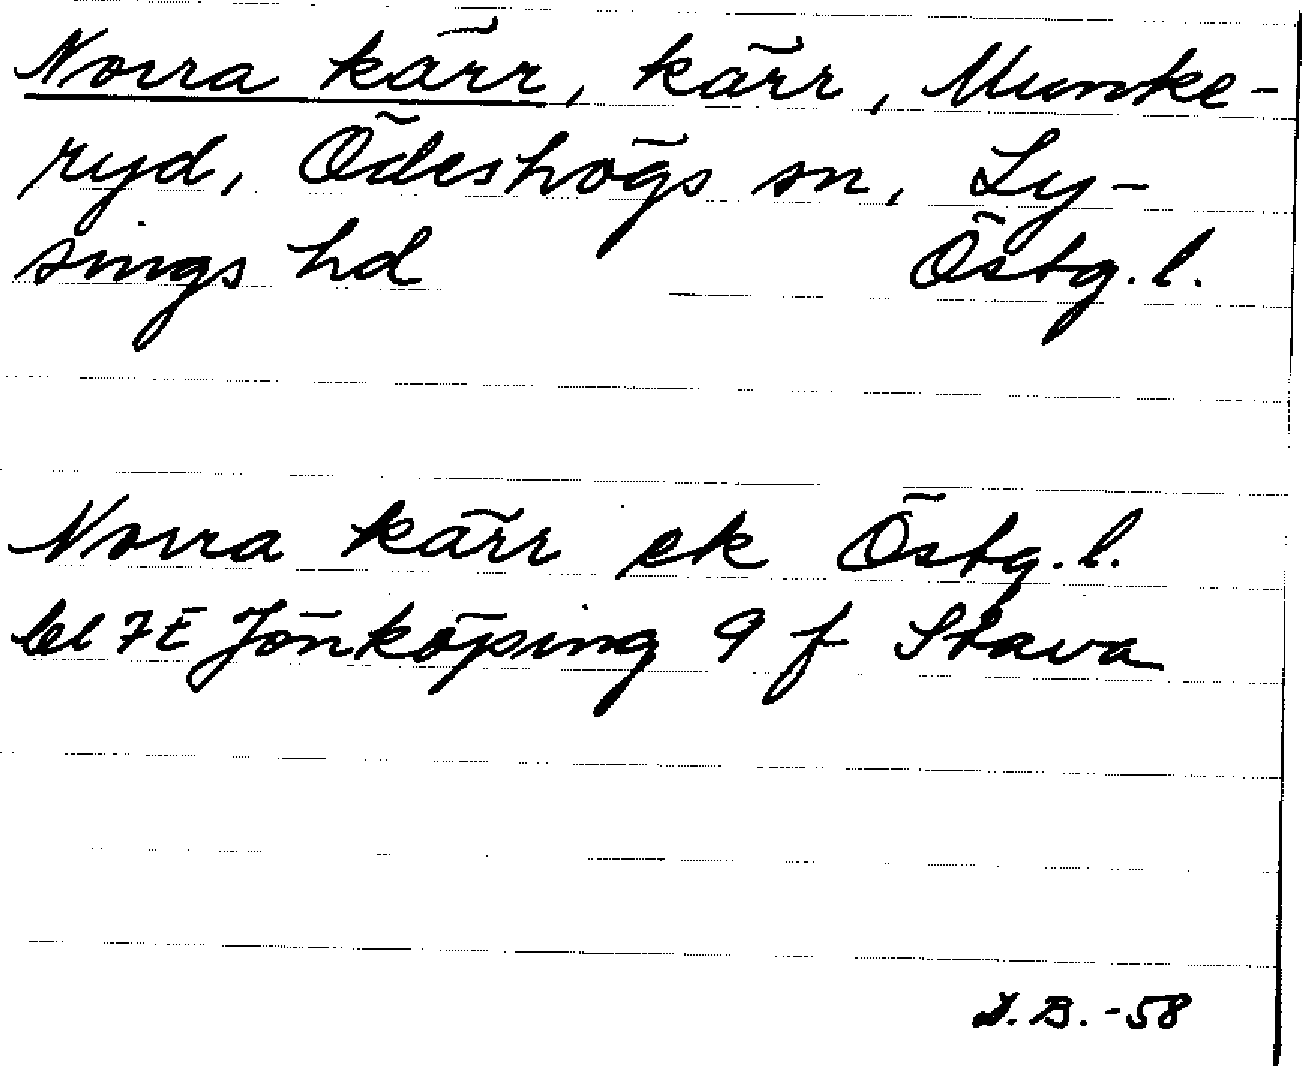 Norra kärr, kärr, Munke-
ryd, Ödeshögs sn, Ly-
sings hd Östg. l.
Norra kärr ek Östg. l.
bl 7E Jönköping 9 f Stava
B. -58